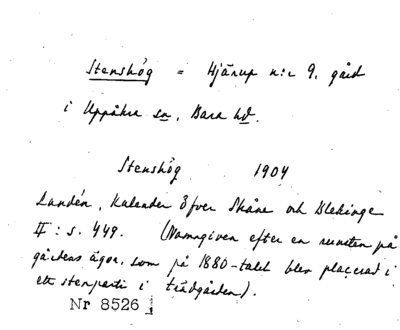 Stenshög = Hjärup n:r 9, gård
i Uppåkra sn, Bara hd.
Stenshög 1904
Lundén, Kalender öfver Skåne och Blekinge
II: s. 449. (Namngiven efter en runsten på
gårdens ägor, som på 1880-talet blev placerad i
ett stenparti i trädgården).
Nr 8526